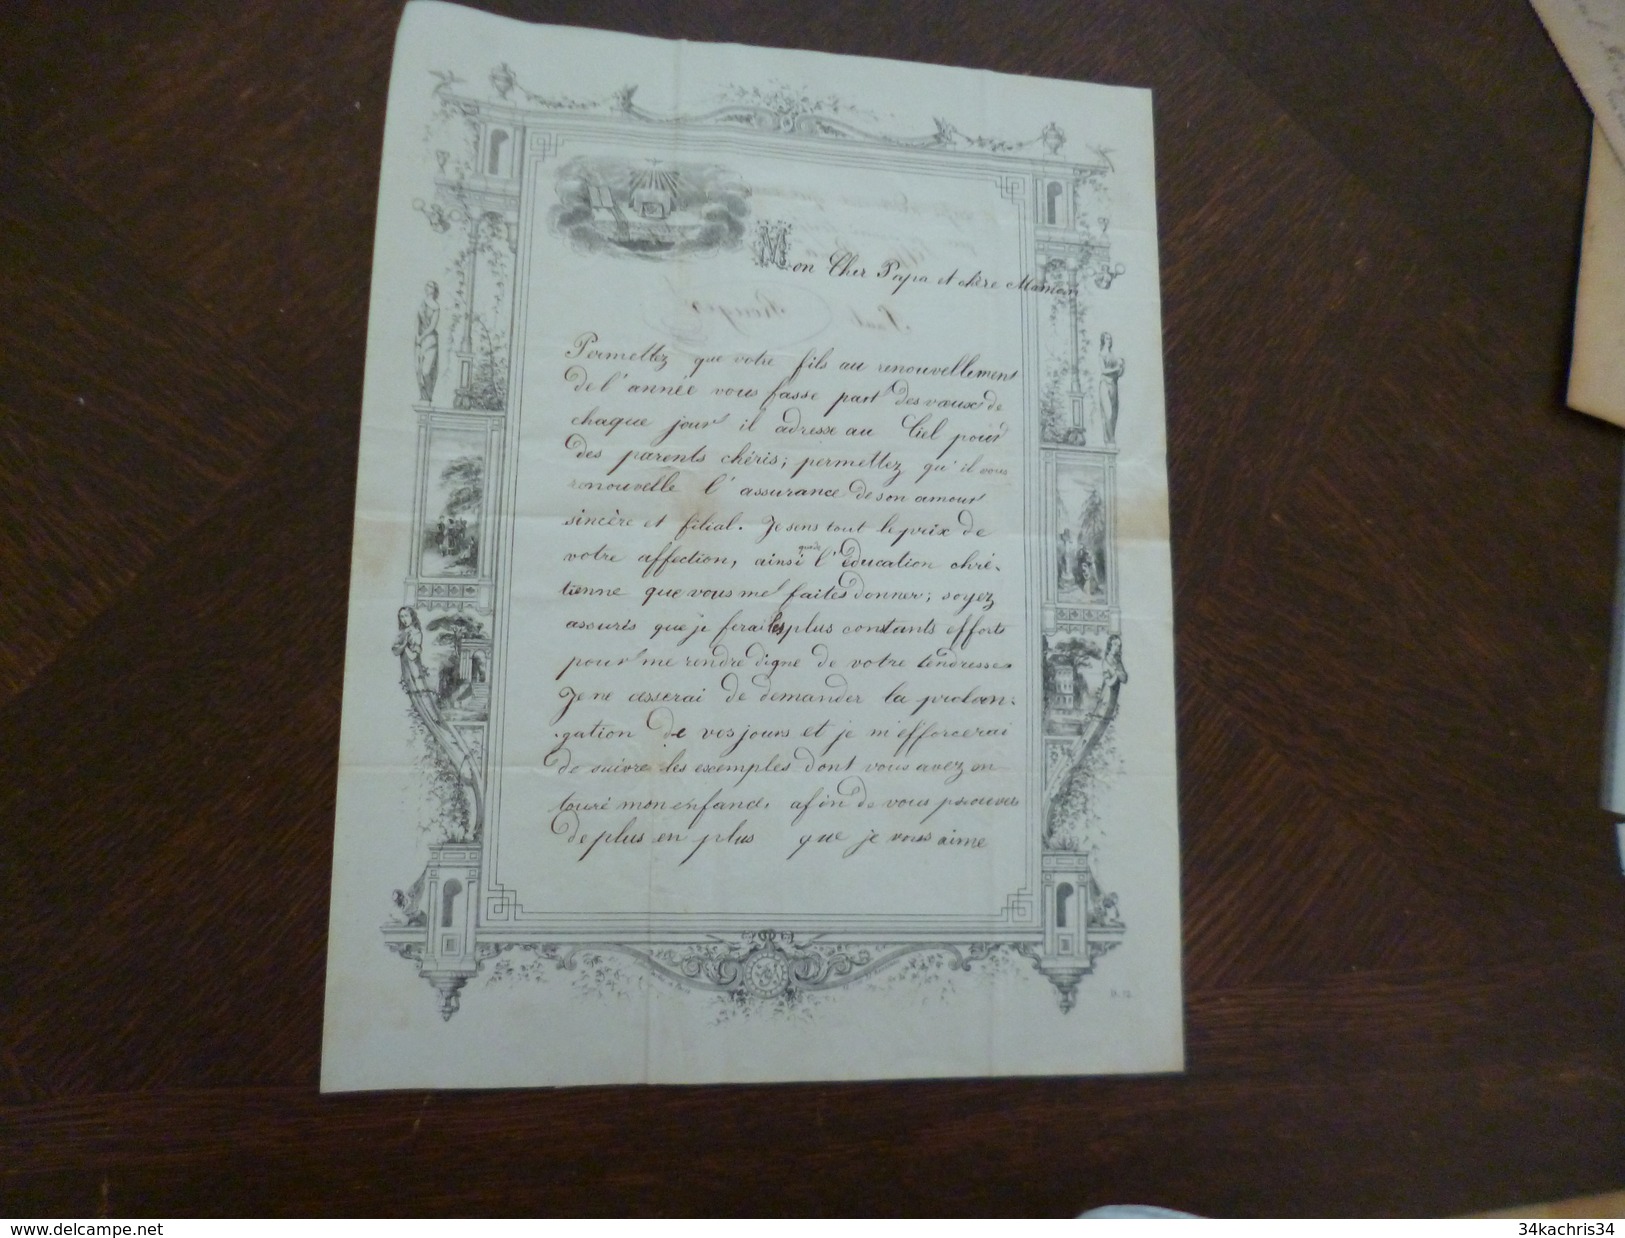 Mon Cher Papa et chère Maman
Permettez que votre fils au renouvellement
de l'année vous fasse part des vœux de
chaque jour il adresse au Ciel pour
des parents chéris; permettez qu'il vous
renouvelle l'assurance de son amour
sincère et filial. Je sens tout le prix de
votre affection, ainsi que de l'éducation chré-
tienne que vous me faites donner; soyez
assuris que je ferai les plus constants efforts
pour me rendre digne de votre tendresse.
Je ne cesserai de demander la prolon-
-gation de vos jours et je m'efforcerai
de suivre les exemples dont vous avez en
touré mon enfance, afin de vous prouver
de plus en plus que je vous aime
www.delcampe.net
34kachris34